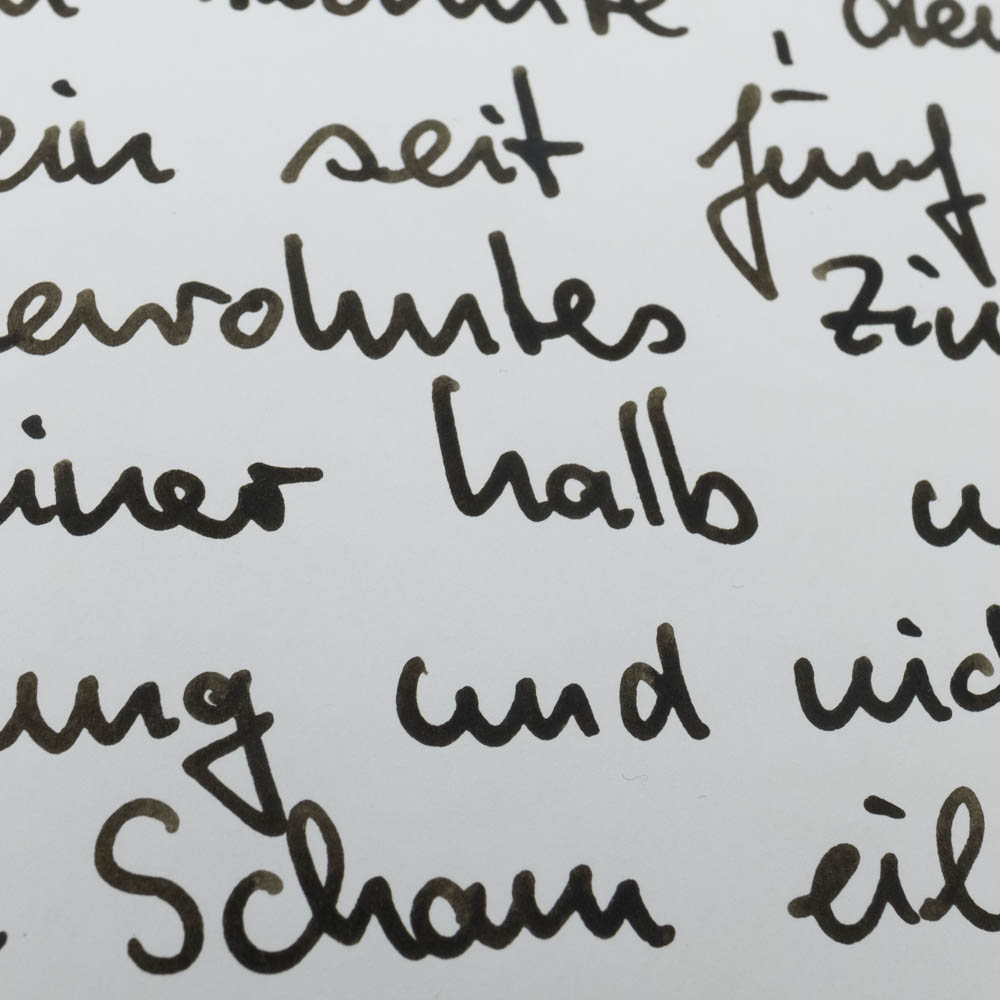 ein seit fünf
ewohntes Zim
iner halb u
ung und nich
Scham eil